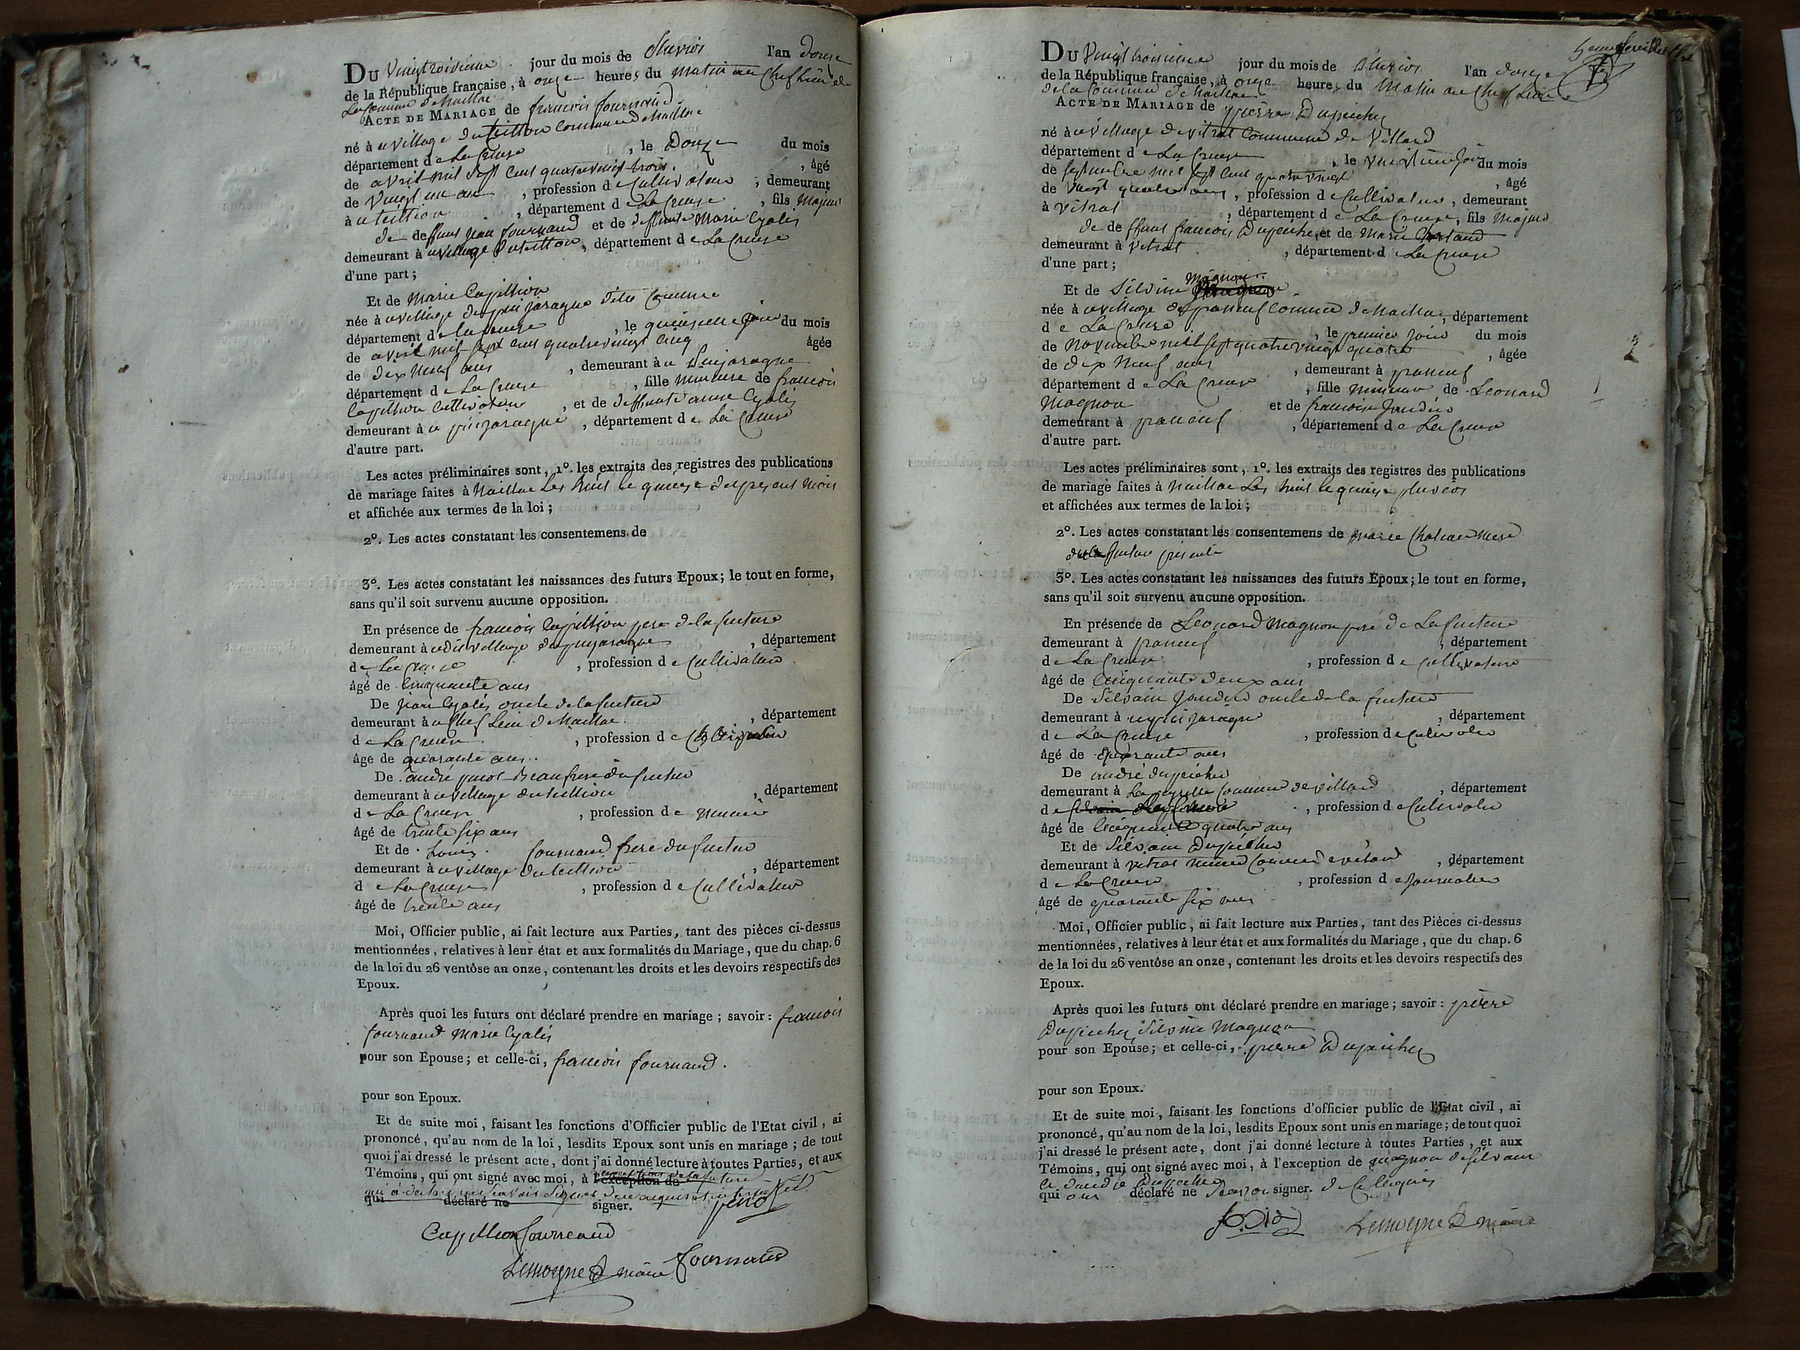 Du vingtroisieme jour du mois de pluvios l'an douze
de la République française, à onze heures du matin au Chef lieu de
la Commune de Maillac
ACTE DE MARIAGE de francois fournaud
né à u village du teillion commune de Maillac
département de La Creuse, le Douze du mois
de avril mil sept cent quatrevingt trois, âgé
de vingt un an, profession de Cultivateur, demeurant
à u teillion, département de La Creuse, fils Majeur
de deffunt jean fournaud et de deffunte Marie Cyalis
demeurant à u village du teillion, département de La Creuse
d'une part;
Et de Marie Capillion
née à u village de puijaragne dite Commune
département de la Creuse, le du mois
de avril mil sept cent quatre vingt cinq âgée
de dix Neuf ans, demeurant à u Puijaragne
département de La Creuse, fille mineure de francois
Capillion Cultivateur, et de deffunte anne Cyalis
demeurant à u puijaragne, département de La Creuse
d'autre part.
Les actes préliminaires sont, 1°. les extraits des registres des publications
de mariage faites à Maillac Les huit le quinze du present mois
et affichée aux termes de la loi;
2°. Les actes constatant les consentemens de
3°. Les actes constatant les naissances des futurs Epoux; le tout en forme,
sans qu'il soit survenu aucune opposition.
En présence de francois Capillion pere de la future
demeurant à u dit village de puijaragne, département
de La Creuse, profession de Cultivateur
âgé de Cinquante ans
De jean Cyalis oncle de la future
demeurant à u chef Lieu de Maillac, département
de La Creuse, profession de
âge de quarante ans
De andré beaufrere du futur
demeurant à u village du teillion, département
de La Creuse, profession de
âgé de trente six ans
Et de Louis fournaud frere du futur
demeurant à u village du teillion, département
de La Creuse, profession de Cultivateur
âgé de trente ans
Moi, Officier public, ai fait lecture aux Parties, tant des pièces ci-dessus
mentionnées, relatives à leur état et aux formalités du Mariage, que du chap. 6
de la loi du 26 ventôse an onze, contenant les droits et les devoirs respectifs des
Epoux.
Après quoi les futurs ont déclaré prendre en mariage; savoir: francois
fournaud Marie Cyalis
pour son Epouse; et celle-ci, francois fournaud.
pour son Epoux.
Et de suite moi, faisant les fonctions d'Officier public de l'Etat civil, ai
prononcé, qu'au nom de la loi, lesdits Epoux sont unis en mariage; de tout
quoi j'ai dressé le présent acte, dont j'ai donné lecture à toutes Parties, et aux
Témoins, qui ont signé avec moi, à l'exception de la future
qui déclaré ne signer.
Capillion fourneaud
Lemoyne maire fournaud
Du vingt troisieme jour du mois de pluvios l'an douze
de la République française, à onze heures du Matin au Chef Lieu
de la Commune de Maillac
ACTE DE MARIAGE de pierre Dupeichez
né à u village de vitrat Commune de Villard
département de La Creuse, le du mois
de septembre mil sept cent quatre vingt, âgé
de vingt quatre ans, profession de Cultivateur, demeurant
à vitrat, département de La Creuse, fils Majeur
de deffunt francois Dupeichez, et de Marie
demeurant à vitrat, département de La Creuse
d'une part;
Et de Silvine Magnon
née à u village de Commune de Maillac, département
de La Creuse, le premier jour du mois
de Novembre mil sept quatre vingt quatre, âgée
de dix Neuf ans, demeurant à
département de La Creuse, fille mineure de Leonard
Magnon et de francoise Jandin
demeurant à, département de La Creuse
d'autre part.
Les actes préliminaires sont, 1°. les extraits des registres des publications
de mariage faites à Maillac Les huit le quinze pluvios
et affichées aux termes de la loi;
2°. Les actes constatant les consentemens de Marie mere
du futur presente
3°. Les actes constatant les naissances des futurs Epoux; le tout en forme,
sans qu'il soit survenu aucune opposition.
En présence de Leonard Magnon pere de La future
demeurant à, département
de La Creuse, profession de Cultivateur
âgé de Cinquante deux ans
De Silvain Jandin oncle de la future
demeurant à u puijaragne, département
de La Creuse, profession de Cultivateur
âgé de quarante ans
De andré dupeichez
demeurant à Commune de villard, département
de, profession de Cultivateur
âgé de Cinquante quatre ans
Et de Silvain Dupeichez
demeurant à vitrat même Commune, département
de La Creuse, profession de Journalier
âgé de quarante six ans
Moi, Officier public, ai fait lecture aux Parties, tant des Pièces ci-dessus
mentionnées, relatives à leur état et aux formalités du Mariage, que du chap. 6
de la loi du 26 ventôse an onze, contenant les droits et les devoirs respectifs des
Epoux.
Après quoi les futurs ont déclaré prendre en mariage; savoir: pierre
Dupeichez Silvine Magnon
pour son Epouse; et celle-ci, pierre Dupeichez
pour son Epoux.
Et de suite moi, faisant les fonctions d'officier public de l'Etat civil, ai
prononcé, qu'au nom de la loi, lesdits Epoux sont unis en mariage; de tout quoi
j'ai dressé le présent acte, dont j'ai donné lecture à toutes Parties, et aux
Témoins, qui ont signé avec moi, à l'exception de magnon de silvain
qui ont déclaré ne savoir signer. de Ce Enquis
Lemoyne maire